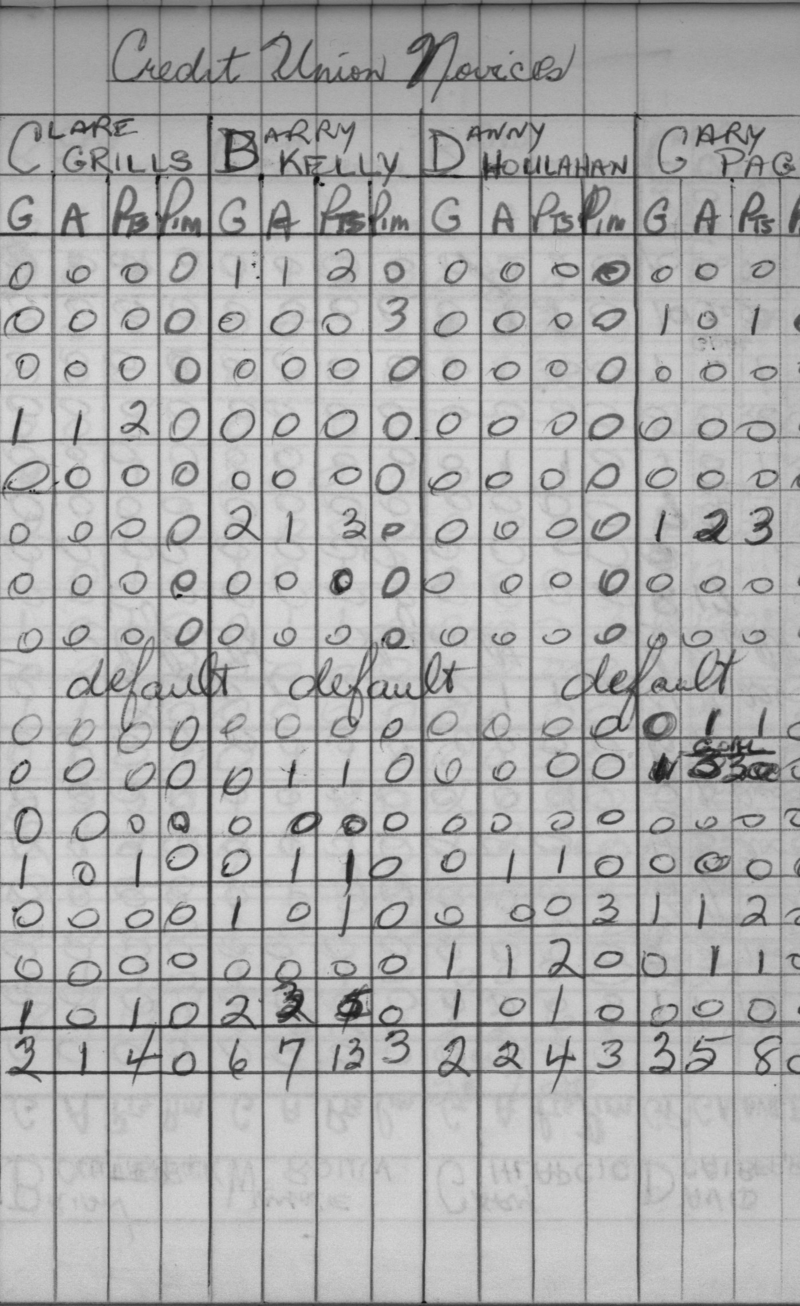 Credit Union Novices
CLARE GRILLS BARRY KELLY DANNY HOULAHAN GARY PAG
G A Pts Pim G A Pts Pim G A Pts Pim G A Pts
0 0 0 0 1 1 2 0 0 0 0 0 0 0 0
0 0 0 0 0 0 0 3 0 0 0 0 1 0 1
0 0 0 0 0 0 0 0 0 0 0 0 0 0 0
1 1 2 0 0 0 0 0 0 0 0 0 0 0 0
0 0 0 0 0 0 0 0 0 0 0 0 0 0 0
0 0 0 0 2 1 3 0 0 0 0 0 1 2 3
0 0 0 0 0 0 0 0 0 0 0 0 0 0 0
0 0 0 0 0 0 0 0 0 0 0 0 0 0 0
default default default
0 0 0 0 0 0 0 0 0 0 0 0 0 1 1
GOAL
0 0 0 0 0 1 1 0 0 0 0 0
0 0 0 0 0 0 0 0 0 0 0 0 0 0 0
1 0 1 0 0 1 1 0 0 1 1 0 0 0 0
0 0 0 0 1 0 1 0 0 0 0 3 1 1 2
0 0 0 0 0 0 0 0 1 1 2 0 0 1 1
1 0 1 0 2 0 1 0 1 0 0 0 0
3 1 4 0 6 7 13 3 2 2 4 3 3 5 8